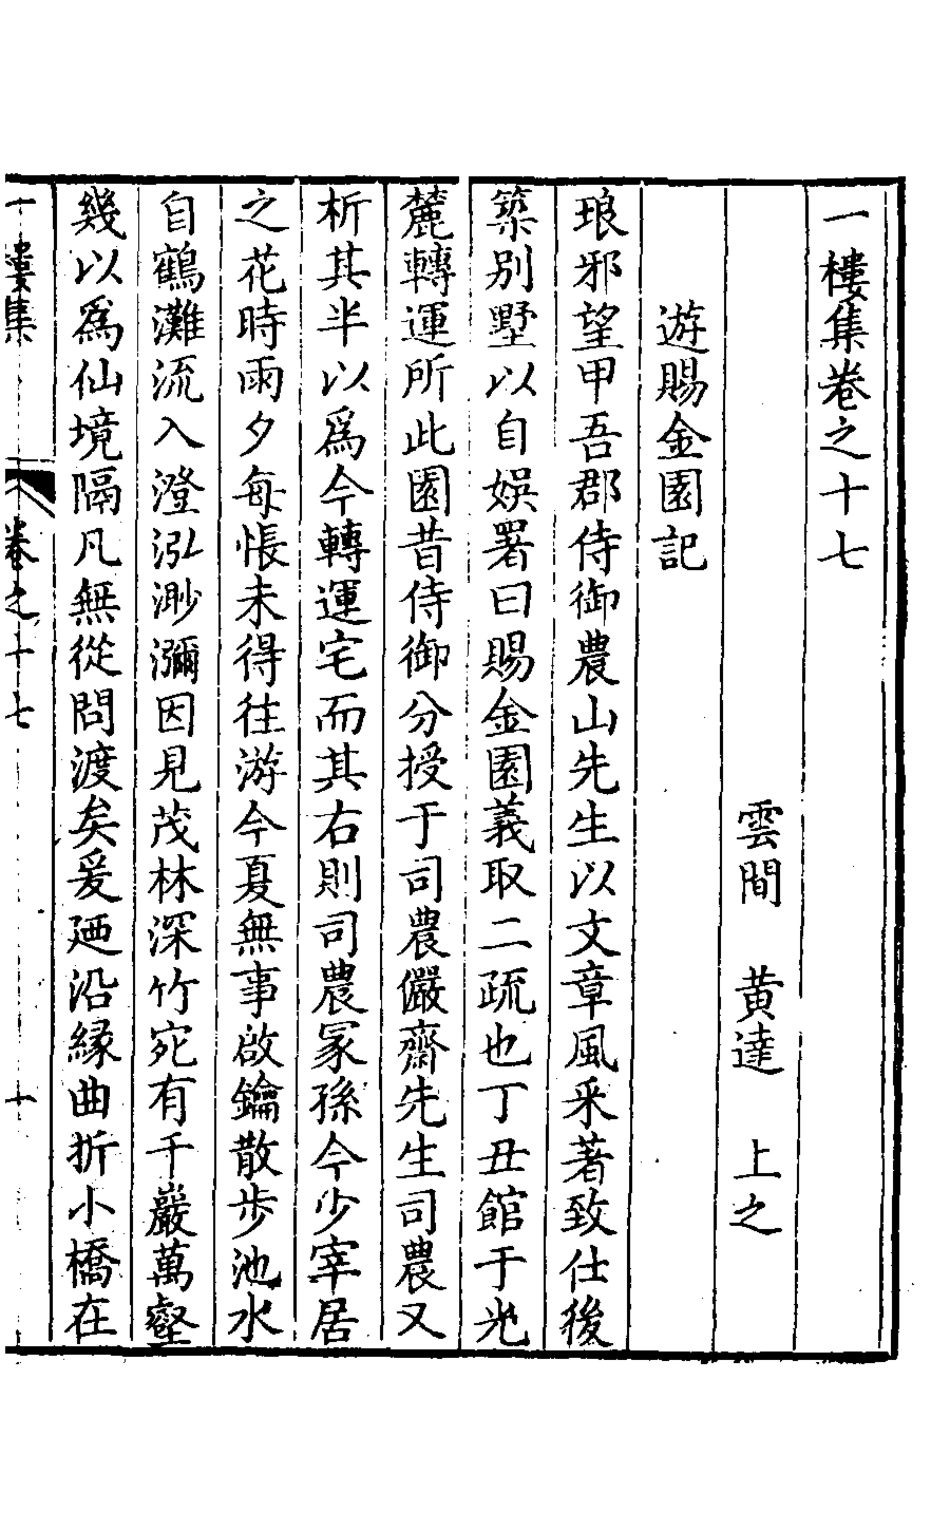 一樓集卷之十七
雲間　黄達　上之
遊賜金園記
琅邪望甲吾郡侍御農山先生以文章風采著致仕後
築别墅以自娯署曰賜金園義取二疏也丁丑館于光
麓轉運所此園昔侍御分授于司農儼齋先生司農又
析其半以爲今轉運宅而其右則司農冢孫今少宰居
之花時雨夕每悵未得往游今夏無事啟鑰散步池水
自鶴灘流入澄泓渺瀰因見茂林深竹宛有千巖萬壑
幾以爲仙境隔凡無從問渡矣爰廼沿緣曲折小橋在
一樓集　卷之十七　十